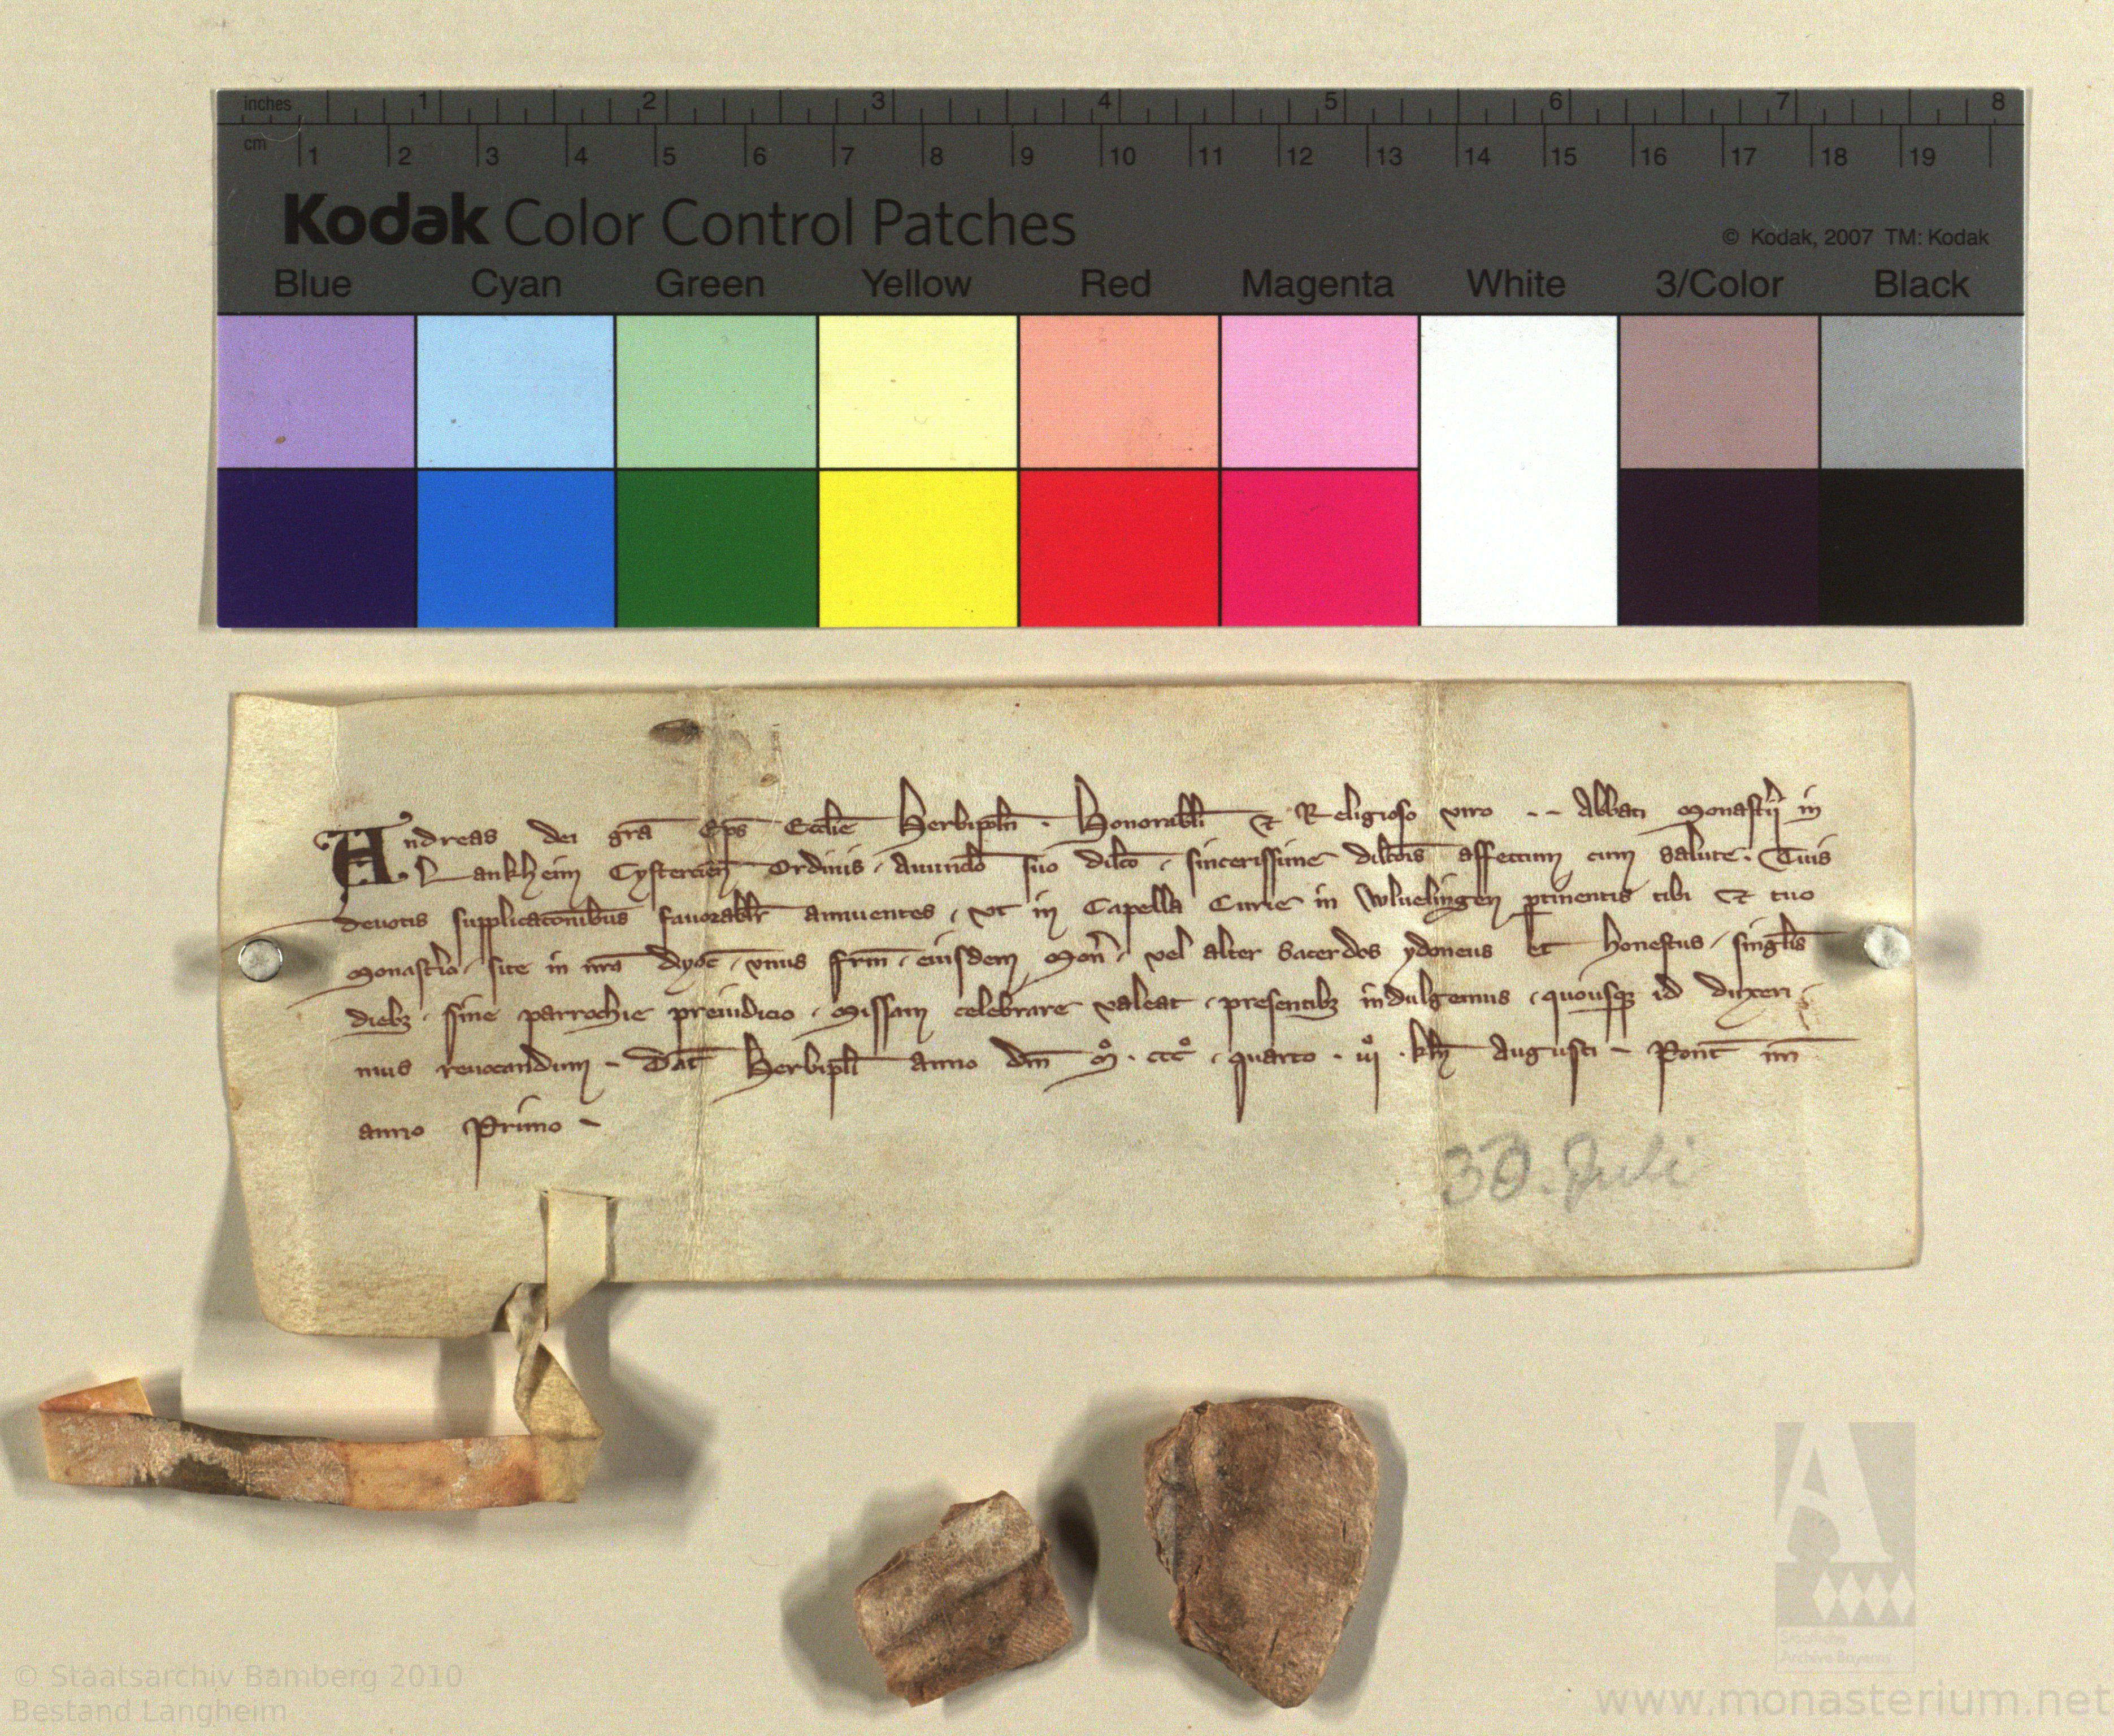 inches 1 2 3 4 5 6 7 8
cm 1 2 3 4 5 6 7 8 9 10 11 12 13 14 15 16 17 18 19
Kodak Color Control Patches
© Kodak, 2007 TM: Kodak
Blue Cyan Green Yellow Red Magenta White 3/Color Black
Andreas dei gra̅ Ep̅s Eccl̅ie Herbipol̅n · Honorabil̅i et Religioso viro ·· Abbati Monast̅ii in
Lankheim Cystercien̅ Ordinis, Amando suo dil̅co, sincerissime dil̅cois affectum cum salute. Tuis
deuotis supplicac̅onibus fauorabl̅r annuentes, vt in Capella Curie in Wluelingen ꝑtinentis tibi et tuo
Monast̅io, site in nr̅a dyoc̅, vnus fr̅m, eiusdem Mon̅, vel alter sacerdos ydoneus et honestus, singl̅is
diebꝫ, sine parrochie preiudicio, Missam celebrare valeat, presentibꝫ indulgemus, quousqꝫ id duxeri-
mus reuocandum – Dat̅ Herbipl̅i anno dn̅i Mº · cccº · quarto · iijº · kl̅n Augusti – Pont̅ nr̅i
anno Primo –
30. Juli
© Staatsarchiv Bamberg 2010
Bestand Langheim
Staatliche
Archive Bayerns
www.monasterium.net